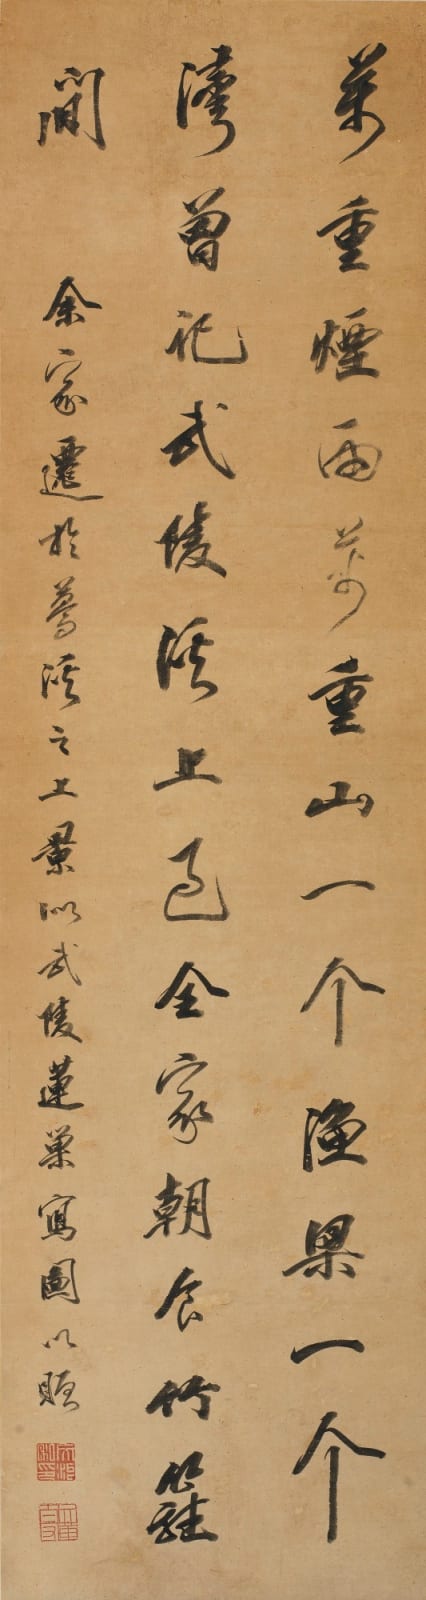 萬重煙雨萬重山一个漁梁一个
灣曾記武陵溪上過全家朝食竹籬
間
余家遷於夢溪之上景似武陵蓮巢寫圖以贈